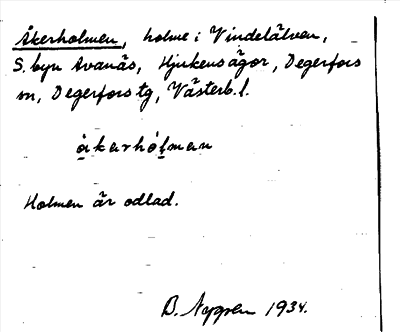 Åkerholmen, holme i Vindelälven,
S. byn Avanäs, Hjukensågor, Degerfors
sn, Degerfors tg, Västerb. l.
åkarhólman
Holmen är odlad.
B. Nygren 1934.